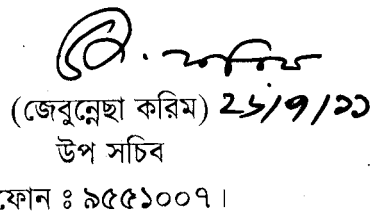 (জেবুন্নেছা করিম) ২৬/৭/১১
উপ সচিব
ফোন ঃ ৯৫৫১০০৭।